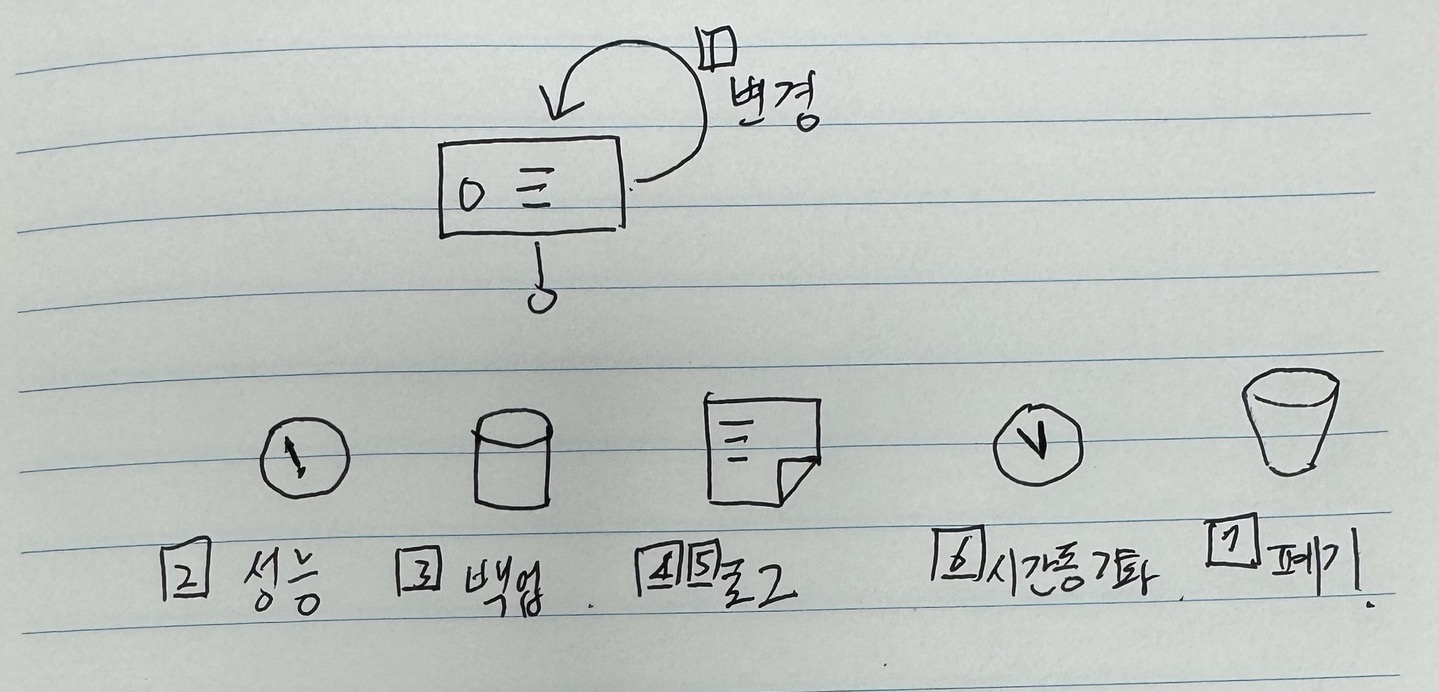 1
변경
2 성능 3 백업 4 5 로그 6 시간동기화 7 폐기